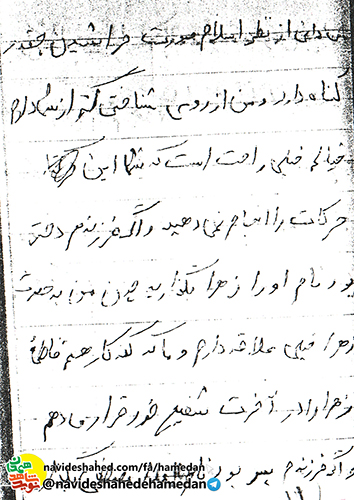 می دانی از نظر اسلام صورت خراشیدن چقدر
گناه دارد و من از روی شناختی که از شما دارم
خیالم خیلی راحت است که شما این
حرکات را انجام نمی دهید و اگر فرزندم دختر
بود نام او را زهرا بگذارید چون من به حضرت
زهرا خیلی علاقه دارم و ما که گنه کاریم فاطمه
زهرا را در آخرت شفیع خود قرار می دهم
و اگر فرزندم پسر بود
navideshahed.com/fa/hamedan
@navideshahedehamedan